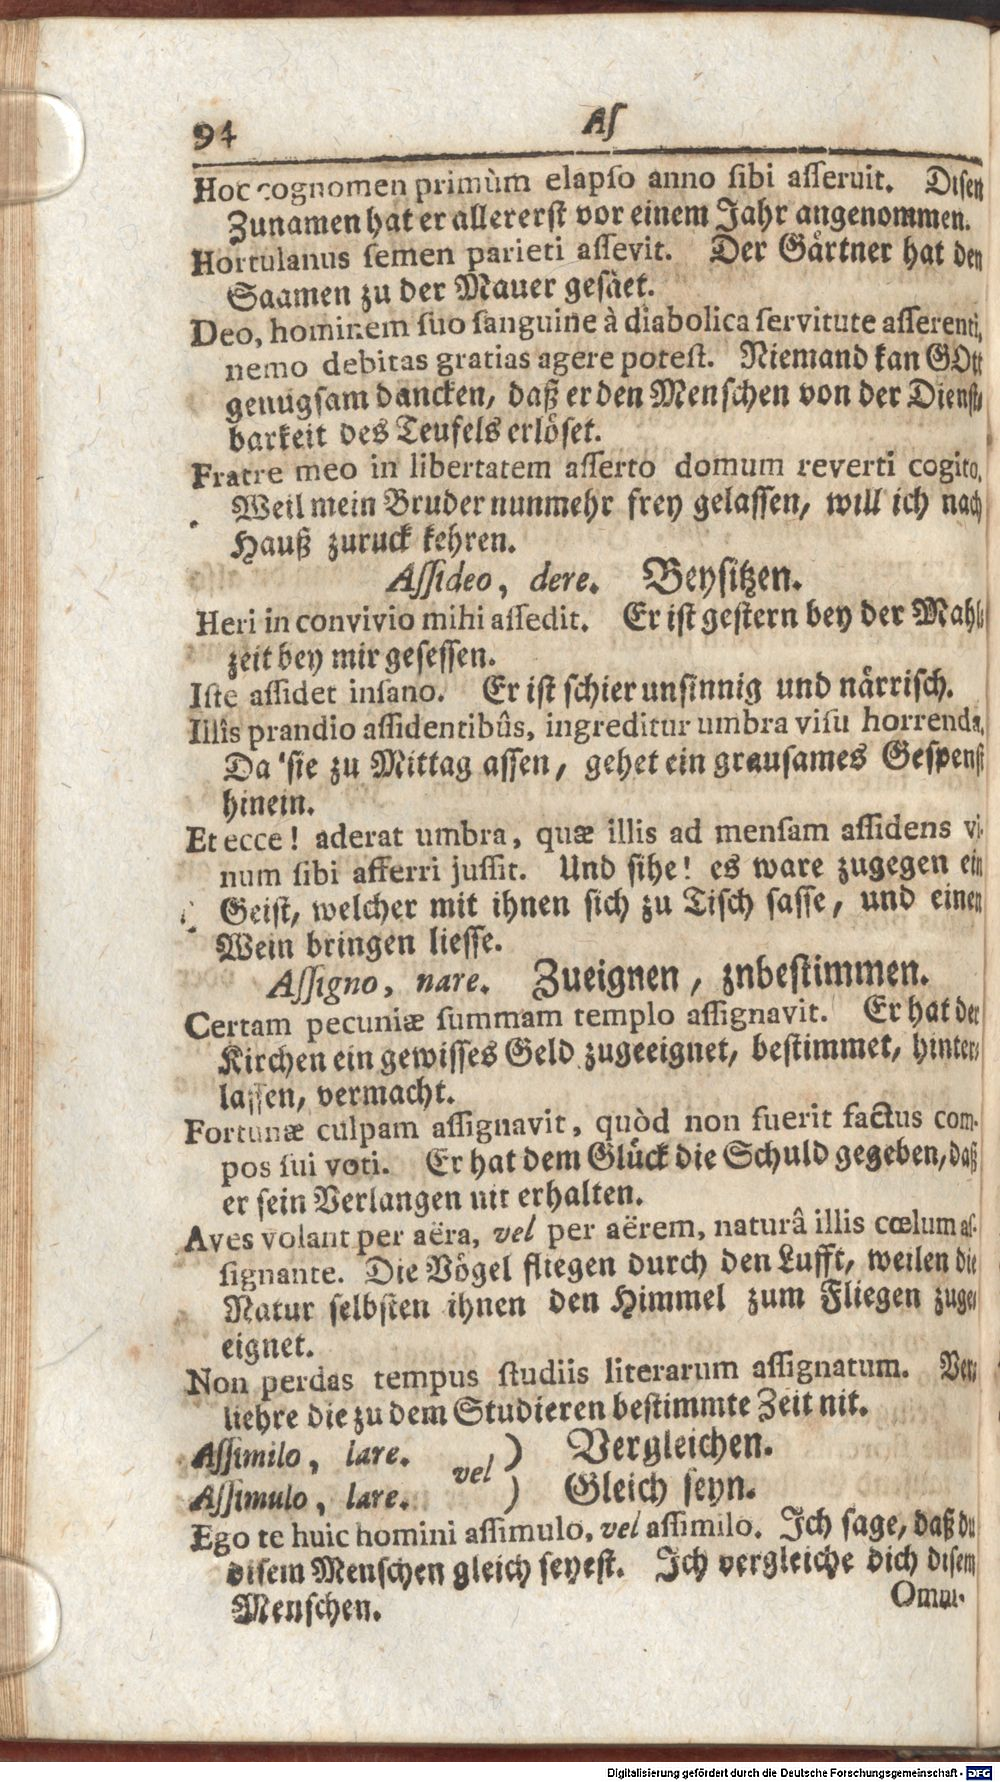 94 As
Hoc cognomen primùm elapso anno sibi asseruit. Disen
Zunamen hat er allererst vor einem Jahr angenommen.
Hortulanus semen parieti assevit. Der Gårtner hat den
Saamen zu der Mauer gesäet.
Deo, hominem suo sanguine à diabolica servitute asserenti,
nemo debitas gratias agere potest. Niemand kan GOtt
genugsam dancken, daß er den Menschen von der Dienst-
barkeit des Teufels erlöset.
Fratre meo in libertatem asserto domum reverti cogito.
Weil mein Bruder nunmehr frey gelassen, will ich nach
Hauß zuruck kehren.
Assideo, dere. Beysitzen.
Heri in convivio mihi assedit. Er ist gestern bey der Mahl-
zeit bey mir gesessen.
Iste assidet insano. Er ist schier unsinnig und närrisch.
Illîs prandio assidentibûs, ingreditur umbra visu horrenda.
Da sie zu Mittag assen, gehet ein grausames Gespenst
hinein.
Et ecce! aderat umbra, quæ illis ad mensam assidens vi-
num sibi afferri jussit. Und sihe! es ware zugegen ein
Geist, welcher mit ihnen sich zu Tisch sasse, und einen
Wein bringen liesse.
Assigno, nare. Zueignen, znbestimmen.
Certam pecuniæ summam templo assignavit. Er hat der
Kirchen ein gewisses Geld zugeeignet, bestimmet, hinter-
lassen, vermacht.
Fortunæ culpam assignavit, quòd non fuerit factus com-
pos sui voti. Er hat dem Glück die Schuld gegeben, daß
er sein Verlangen nit erhalten.
Aves volant per aëra, vel per aërem, naturâ illis cœlum as-
signante. Die Vögel fliegen durch den Lufft, weilen die
Natur selbsten ihnen den Himmel zum Fliegen zuge-
eignet.
Non perdas tempus studiis literarum assignatum. Ver-
liehre die zu dem Studieren bestimmte Zeit nit.
Assimilo, lare. vel ) Vergleichen.
Assimulo, lare. ) Gleich seyn.
Ego te huic homini assimulo, vel assimilo. Ich sage, daß du
disem Menschen gleich seyest. Ich vergleiche dich disem
Menschen.
Omni-
Digitalisierung gefördert durch die Deutsche Forschungsgemeinschaft - DFG